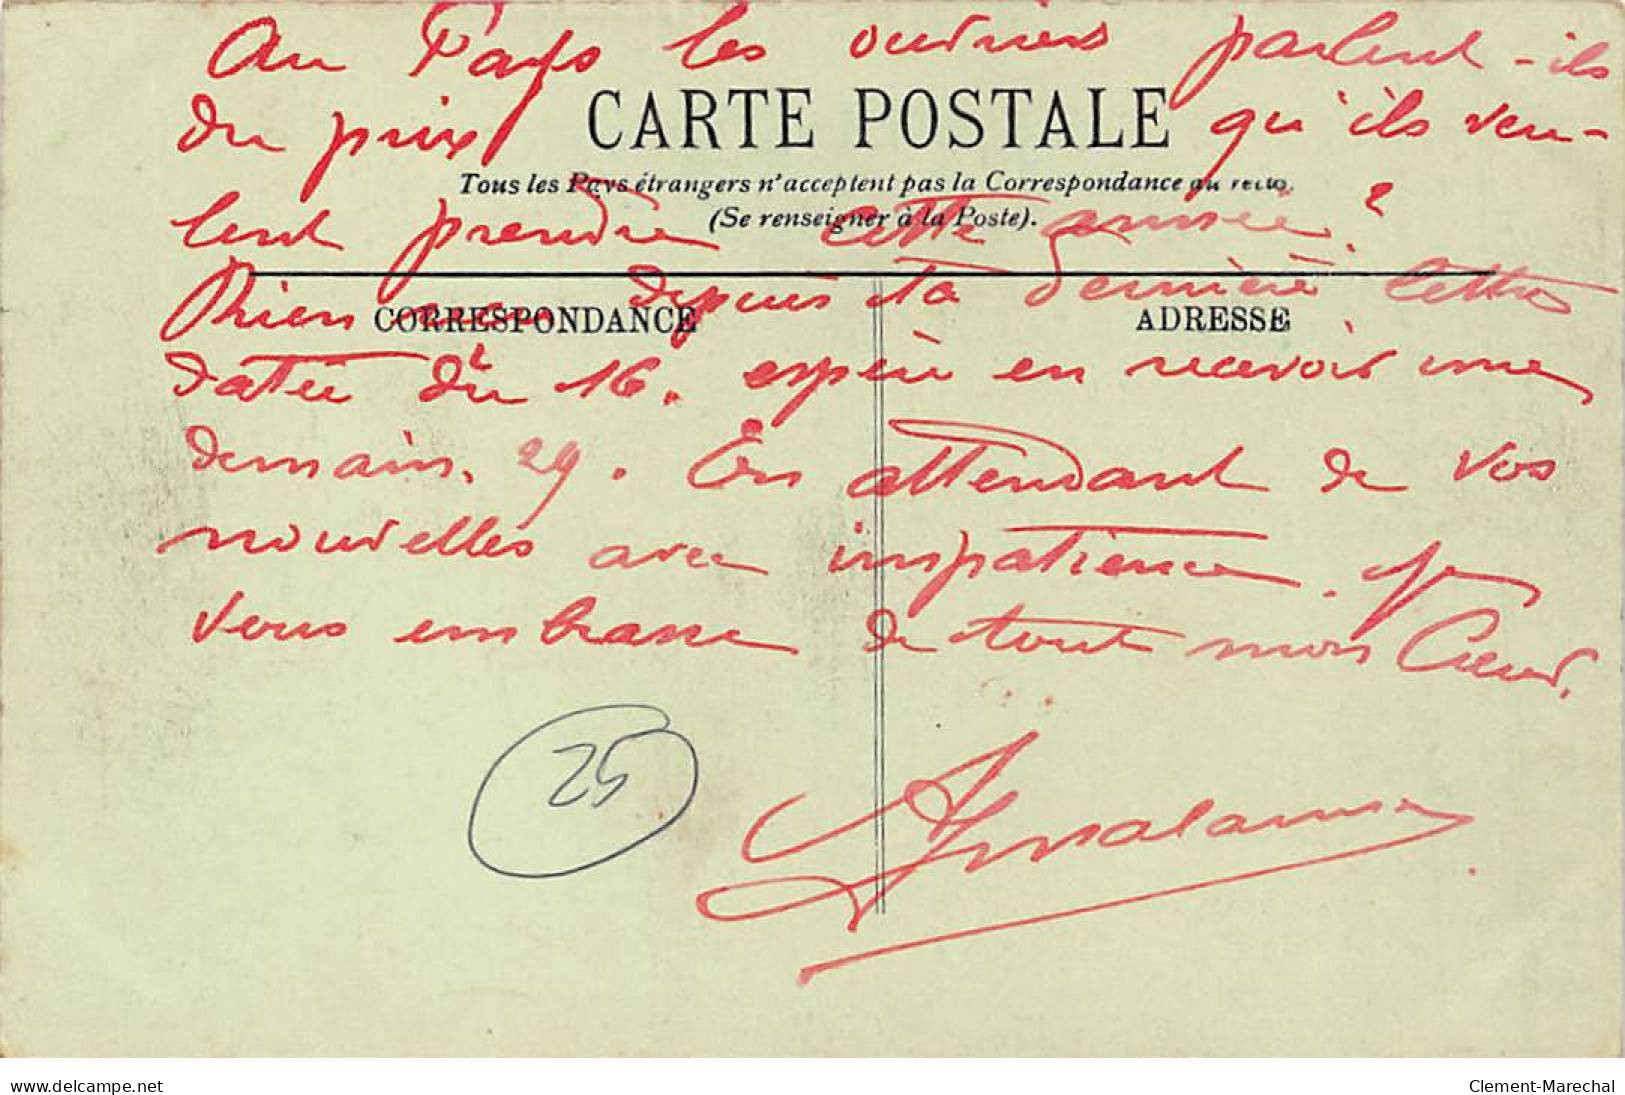 Au Pays les ouvriers parlent-ils
du prix qu'ils veu-
CARTE POSTALE
Tous les Pays étrangers n'acceptent pas la Correspondance au recto.
(Se renseigner à la Poste).
lent prendre cette année ?
Rien depuis ta dernière lettre
CORRESPONDANCE
ADRESSE
datée du 16. espère en recevoir une
demain. 29. En attendant de vos
nouvelles avec impatience. Je
vous embrasse de tout mon Cœur.
25
www.delcampe.net
Clement-Marechal